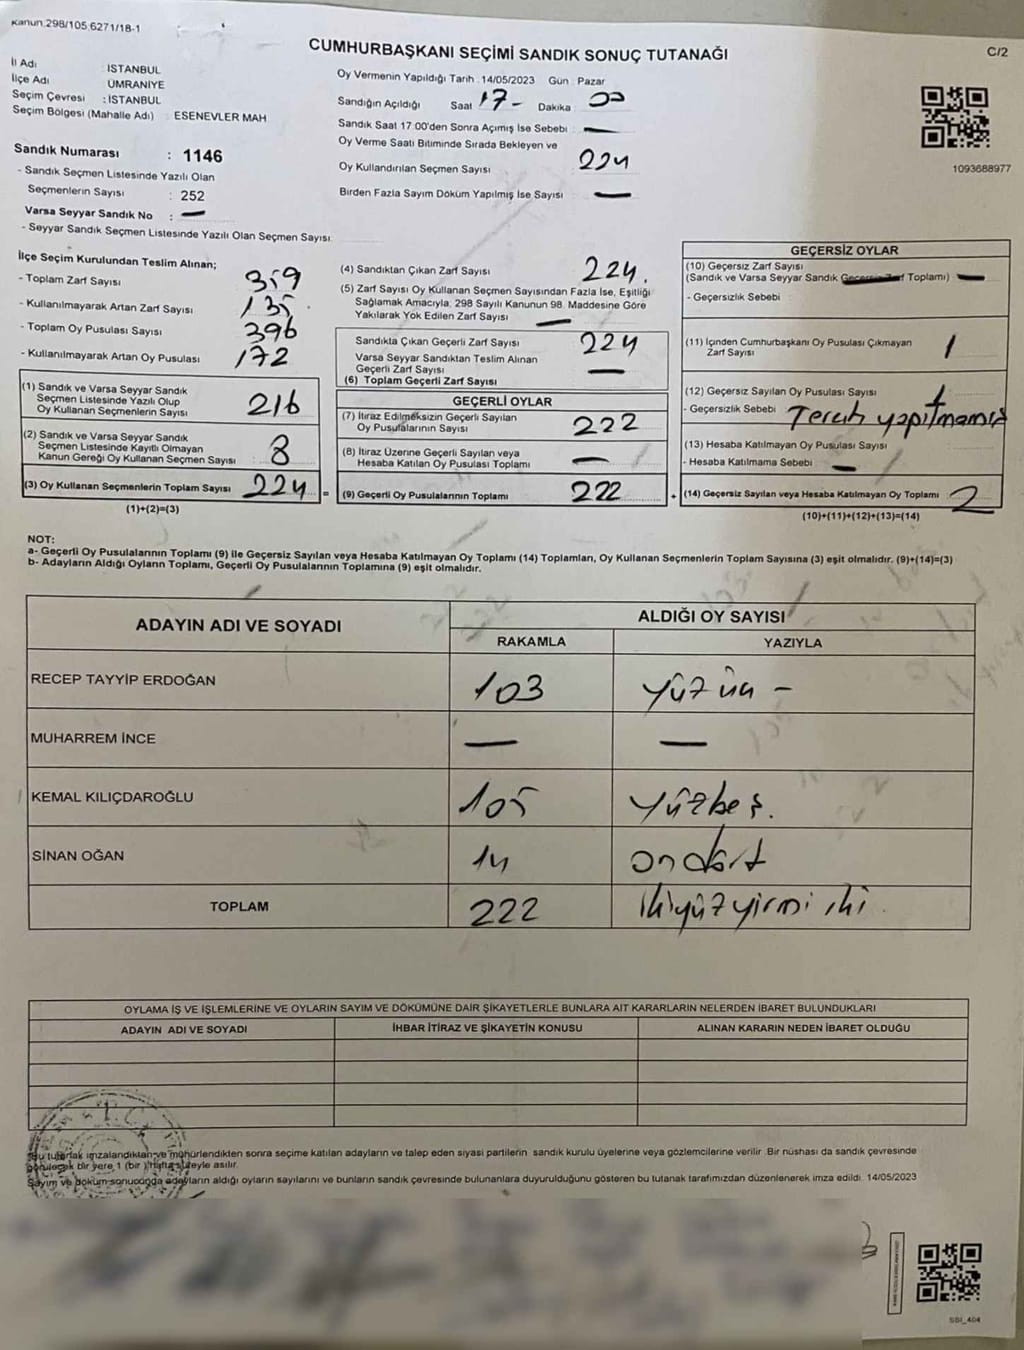 Kanun 298/105 6271/18-1
CUMHURBAŞKANI SEÇİMİ SANDIK SONUÇ TUTANAĞI
C/2
İl Adı : İSTANBUL
İlçe Adı ÜMRANİYE
Seçim Çevresi : İSTANBUL
Seçim Bölgesi (Mahalle Adı) : ESENEVLER MAH
Sandık Numarası : 1146
- Sandık Seçmen Listesinde Yazılı Olan
Seçmenlerin Sayısı : 252
Varsa Seyyar Sandık No : —
- Seyyar Sandık Seçmen Listesinde Yazılı Olan Seçmen Sayısı:
Oy Vermenin Yapıldığı Tarih : 14/05/2023 Gün : Pazar
Sandığın Açıldığı Saat 17- Dakika 00
Sandık Saat 17:00'den Sonra Açımış İse Sebebi : —
Oy Verme Saati Bitiminde Sırada Bekleyen ve
Oy Kullandırılan Seçmen Sayısı 224
Birden Fazla Sayım Döküm Yapılmış İse Sayısı —
1093688977
İlçe Seçim Kurulundan Teslim Alınan;
- Toplam Zarf Sayısı 359
- Kullanılmayarak Artan Zarf Sayısı 135
- Toplam Oy Pusulası Sayısı 396
- Kullanılmayarak Artan Oy Pusulası 172
(1) Sandık ve Varsa Seyyar Sandık
Seçmen Listesinde Yazılı Olup
Oy Kullanan Seçmenlerin Sayısı 216
(2) Sandık ve Varsa Seyyar Sandık
Seçmen Listesinde Kayıtlı Olmayan
Kanun Gereği Oy Kullanan Seçmen Sayısı : 8
(3) Oy Kullanan Seçmenlerin Toplam Sayısı 224 =
(1)+(2)=(3)
(4) Sandıktan Çıkan Zarf Sayısı 224.
(5) Zarf Sayısı Oy Kullanan Seçmen Sayısından Fazla İse, Eşitliği
Sağlamak Amacıyla, 298 Sayılı Kanunun 98. Maddesine Göre
Yakılarak Yok Edilen Zarf Sayısı —
Sandıkta Çıkan Geçerli Zarf Sayısı 224
Varsa Seyyar Sandıktan Teslim Alınan
Geçerli Zarf Sayısı —
(6) Toplam Geçerli Zarf Sayısı
GEÇERLİ OYLAR
(7) İtiraz Edilmeksizin Geçerli Sayılan
Oy Pusulalarının Sayısı 222
(8) İtiraz Üzerine Geçerli Sayılan veya
Hesaba Katılan Oy Pusulası Toplamı —
(9) Geçerli Oy Pusulalarının Toplamı 222 +
GEÇERSİZ OYLAR
(10) Geçersiz Zarf Sayısı
(Sandık ve Varsa Seyyar Sandık Geçersiz Zarf Toplamı) —
- Geçersizlik Sebebi
(11) İçinden Cumhurbaşkanı Oy Pusulası Çıkmayan
Zarf Sayısı 1
(12) Geçersiz Sayılan Oy Pusulası Sayısı 1
- Geçersizlik Sebebi Tercih yapılmamış
(13) Hesaba Katılmayan Oy Pusulası Sayısı
- Hesaba Katılmama Sebebi —
(14) Geçersiz Sayılan veya Hesaba Katılmayan Oy Toplamı 2
(10)+(11)+(12)+(13)=(14)
NOT:
a- Geçerli Oy Pusulalarının Toplamı (9) ile Geçersiz Sayılan veya Hesaba Katılmayan Oy Toplamı (14) Toplamları, Oy Kullanan Seçmenlerin Toplam Sayısına (3) eşit olmalıdır. (9)+(14)=(3)
b- Adayların Aldığı Oyların Toplamı, Geçerli Oy Pusulalarının Toplamına (9) eşit olmalıdır.
ADAYIN ADI VE SOYADI
ALDIĞI OY SAYISI
RAKAMLA YAZIYLA
RECEP TAYYİP ERDOĞAN 103 Yüzüç -
MUHARREM İNCE — —
KEMAL KILIÇDAROĞLU 105 Yüzbeş.
SİNAN OĞAN 14 ondört
TOPLAM 222 ikiyüzyirmi iki
OYLAMA İŞ VE İŞLEMLERİNE VE OYLARIN SAYIM VE DÖKÜMÜNE DAİR ŞİKAYETLERLE BUNLARA AİT KARARLARIN NELERDEN İBARET BULUNDUKLARI
ADAYIN ADI VE SOYADI İHBAR İTİRAZ VE ŞİKAYETİN KONUSU ALINAN KARARIN NEDEN İBARET OLDUĞU
T.C.
Bu tutanak imzalandıktan ve mühürlendikten sonra seçime katılan adayların ve talep eden siyasi partilerin sandık kurulu üyelerine veya gözlemcilerine verilir. Bir nüshası da sandık çevresinde
görülecek bir yere 1 (bir) hafta süreyle asılır.
Sayım ve döküm sonucunda adayların aldığı oyların sayılarını ve bunların sandık çevresinde bulunanlara duyurulduğunu gösteren bu tutanak tarafımızdan düzenlenerek imza edildi. 14/05/2023
SBI_404